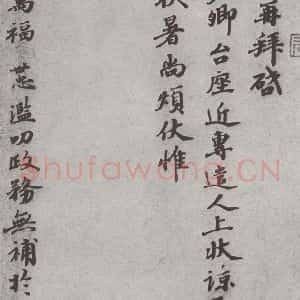 再拜啓
卿台座近專遣人上狀諒
暑尚煩伏惟
萬福 濫叨政務無補於
Shufawang.CN